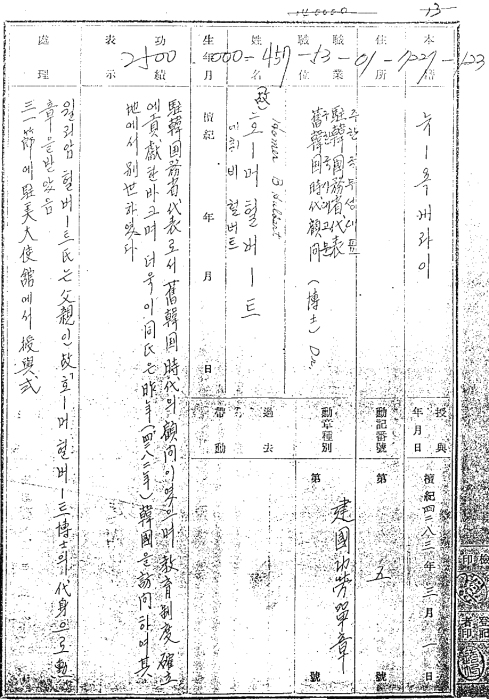 13
2500.000-457-13-01-1727-123
本籍
뉴ー욕 개라이
住所
職業
職位
주한국무성대표
駐韓国務省代表
구한국시대고문
舊韓国時代顧問
(博士) Dr.
姓名
故 호ー머 헐버ー트
Homer B. Hulbert
비 헐버트
生年月
檀紀 年 月 日
功績
表示
駐韓国務省代表로서 舊韓国時代의 顧問이였으며 敎育制度 確立
에 貢献한바 크며 더욱이 同氏는 昨年(四二八二年) 韓國을 訪問하여 其
地에서 別世하였다
處理
윌리암 헐버ー트氏는 父親인 故 호ー머 헐버ー트博士의 代身으로 勳
章을 받았음
三一節에 駐美大使館에서 授與式
授與
年月日
檀紀四二八三年 三月 一日
勳記番號
第 五 號
勳章種別
第 建國功勞單章 號
過去
帶勳
檢印
登記者印